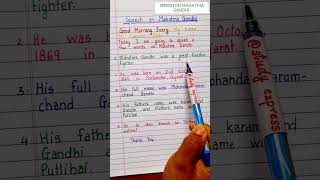 SPEECH ON MAHATMA GANDHI
Speech on Mahatma Gandhi
Good Morning Every
Today I am going to speak a
few words on Mahatma Gandhi.
1. Mahatma Gandhi was a great freedom
fighter.
2. He was born on 2nd October
1869 in Porbandar, Gujarat.
3. His full name was Mohandas Karam-
chand Gandhi.
4. His father's name was Karamchand
Gandhi and Mother's name was
Putlibai.
5. He is also known as
Thank You
@study express
2. He was
1869 in
3. His full
chand
4. His fa
Gandhi
Putlibai
Octo
t.
Karam-
karamo
was